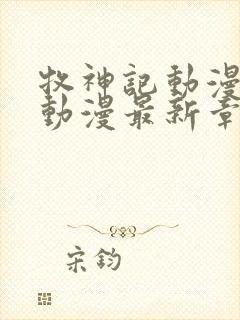 牧神記動漫
動漫最新章
宋鈞